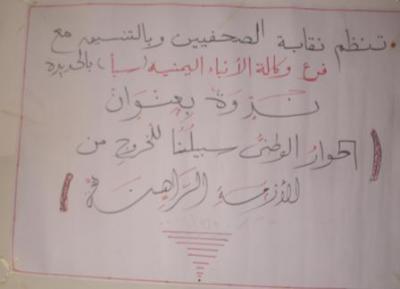 • تنظم نقابة الصحفيين وبالتنسيق مع
فرع وكالة الأنباء اليمنية (سبأ) بالحديدة
ندوة بعنوان
(الحوار الوطني سبيلنا للخروج من
الأزمة الراهنة)